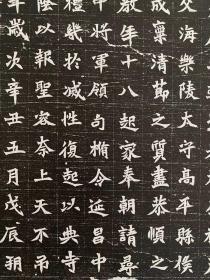 海樂陵太守高平縣侯
成稟清懿之質盡恭順之
年十八起家奉朝請尋
中將軍領句楯令延昌中
禮幾於滅性復起以典寺
隆以報聖奈上天不弔
年歲次辛丑五月戊辰朔